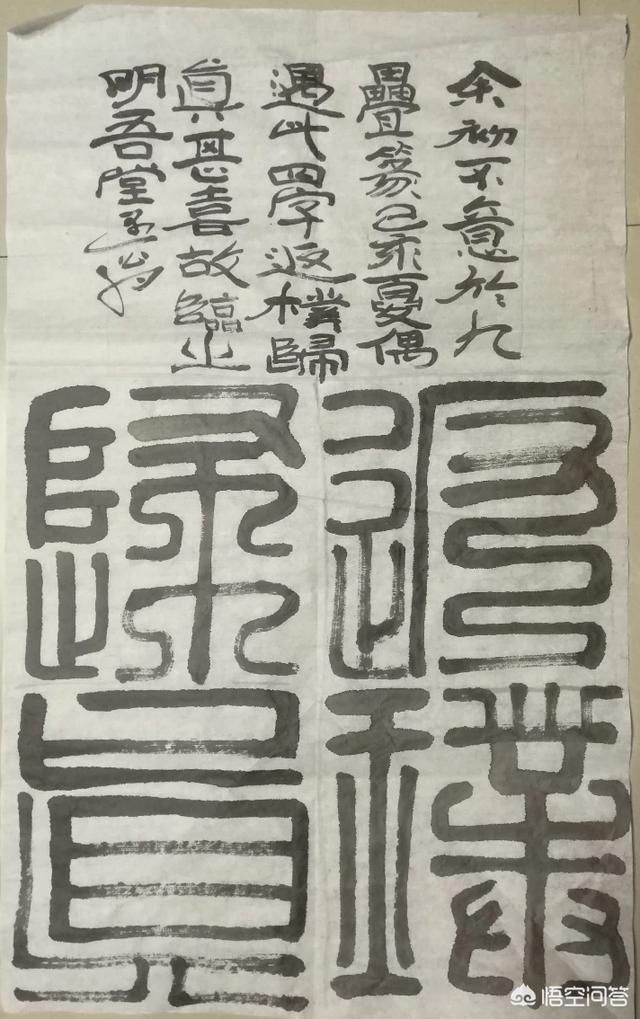 余初不意於九
疊篆己亥夏偶
遇此四字返樸歸
真甚喜故臨之
明吾堂
返璞
歸真
悟空问答